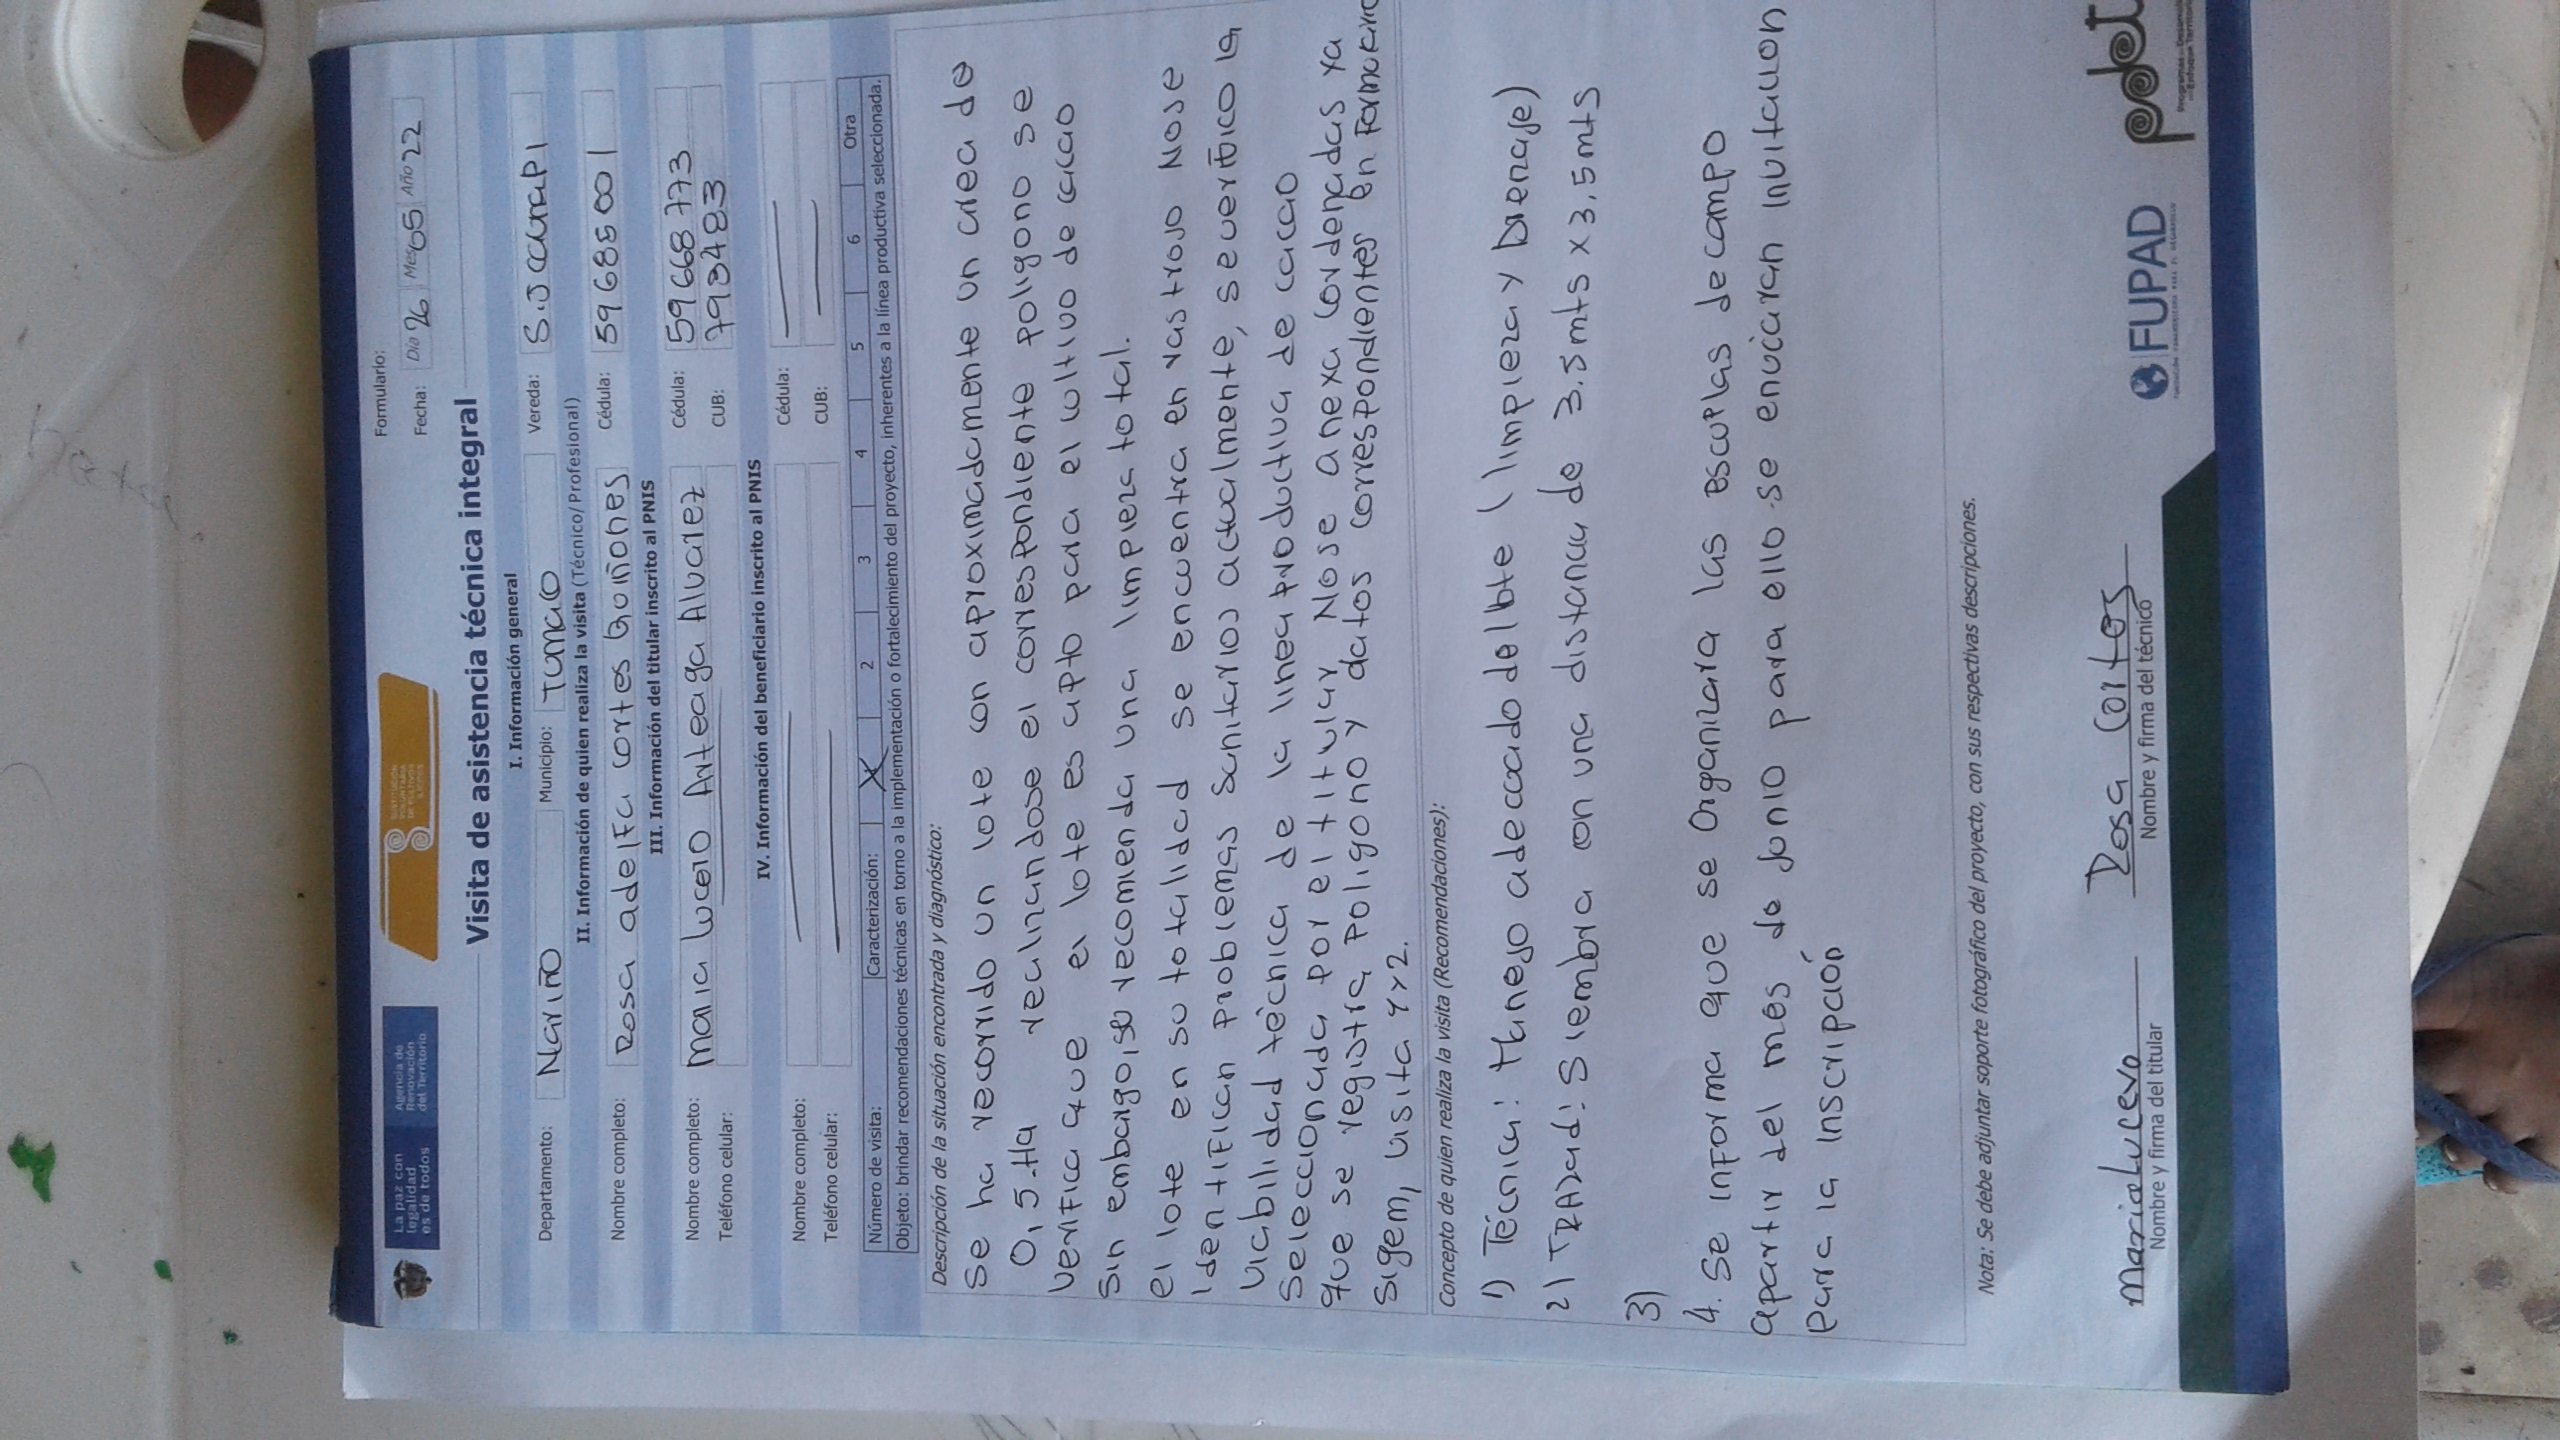 La paz con legalidad es de todos
Agencia de Renovación del Territorio
SUSTITUCIÓN VOLUNTARIA DE CULTIVOS ILÍCITOS
Formulario:
Fecha: Día 26 Mes 05 Año 22
Visita de asistencia técnica integral
I. Información general
Departamento: Nariño Municipio: Tumaco Vereda: S.J caunapi
II. Información de quien realiza la visita (Técnico/ Profesional)
Nombre completo: Rosa adelfa cortes Quiñones Cédula: 59685001
III. Información del titular inscrito al PNIS
Nombre completo: Maria Lucero Arteaga Alvarez Cédula: 59668773
Teléfono celular: CUB: 793483
IV. Información del beneficiario inscrito al PNIS
Nombre completo: Cédula:
Teléfono celular: CUB:
Número de visita: Caracterización: X 2 3 4 5 6 Otra
Objeto: brindar recomendaciones técnicas en torno a la implementación o fortalecimiento del proyecto, inherentes a la línea productiva seleccionada.
Descripción de la situación encontrada y diagnóstico:
Se ha recorrido un lote con aproximadamente un area de
0,5 Ha realinandose el correspondiente poligono se
verifica que el lote es apto para el cultivo de cacao
Sin embargo se recomienda una limpieza total.
el lote en su totalidad se encuentra en rastrojo Nose
identifican problemas Sanitarios actualmente, se verifico la
viabilidad técnica de la linea productiva de cacao
Seleccionada por el titular Nose anexa cordenadas ya
que se registra poligono y datos correspondientes en Formacion
sigem, visita 1x2.
Concepto de quien realiza la visita (Recomendaciones):
1) Técnica: Manejo adecuado del lote (limpieza y Drenaje)
2) TRAzad: Siembra con una distancia de 3.5 mts x 3,5 mts
3)
4. Se informa que se Organizara las escuelas de campo
apartir del mes de Junio para ello se enviaran invitacion
para la inscripación
Nota: Se debe adjuntar soporte fotográfico del proyecto, con sus respectivas descripciones.
Maria Lucero
Nombre y firma del titular
Rosa Cortes
Nombre y firma del técnico
FUPAD
pdet